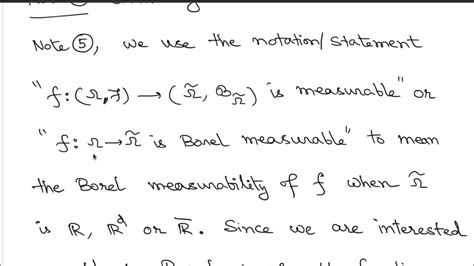 Note ⑤, we use the notation/statement
"f: (Ω, ℱ) → (Ω̃, 𝓑_Ω̃) is measurable" or
"f: Ω → Ω̃ is Borel measurable" to mean
the Borel measurability of f when Ω̃
is ℝ, ℝᵈ or ℝ̄. Since we are interested